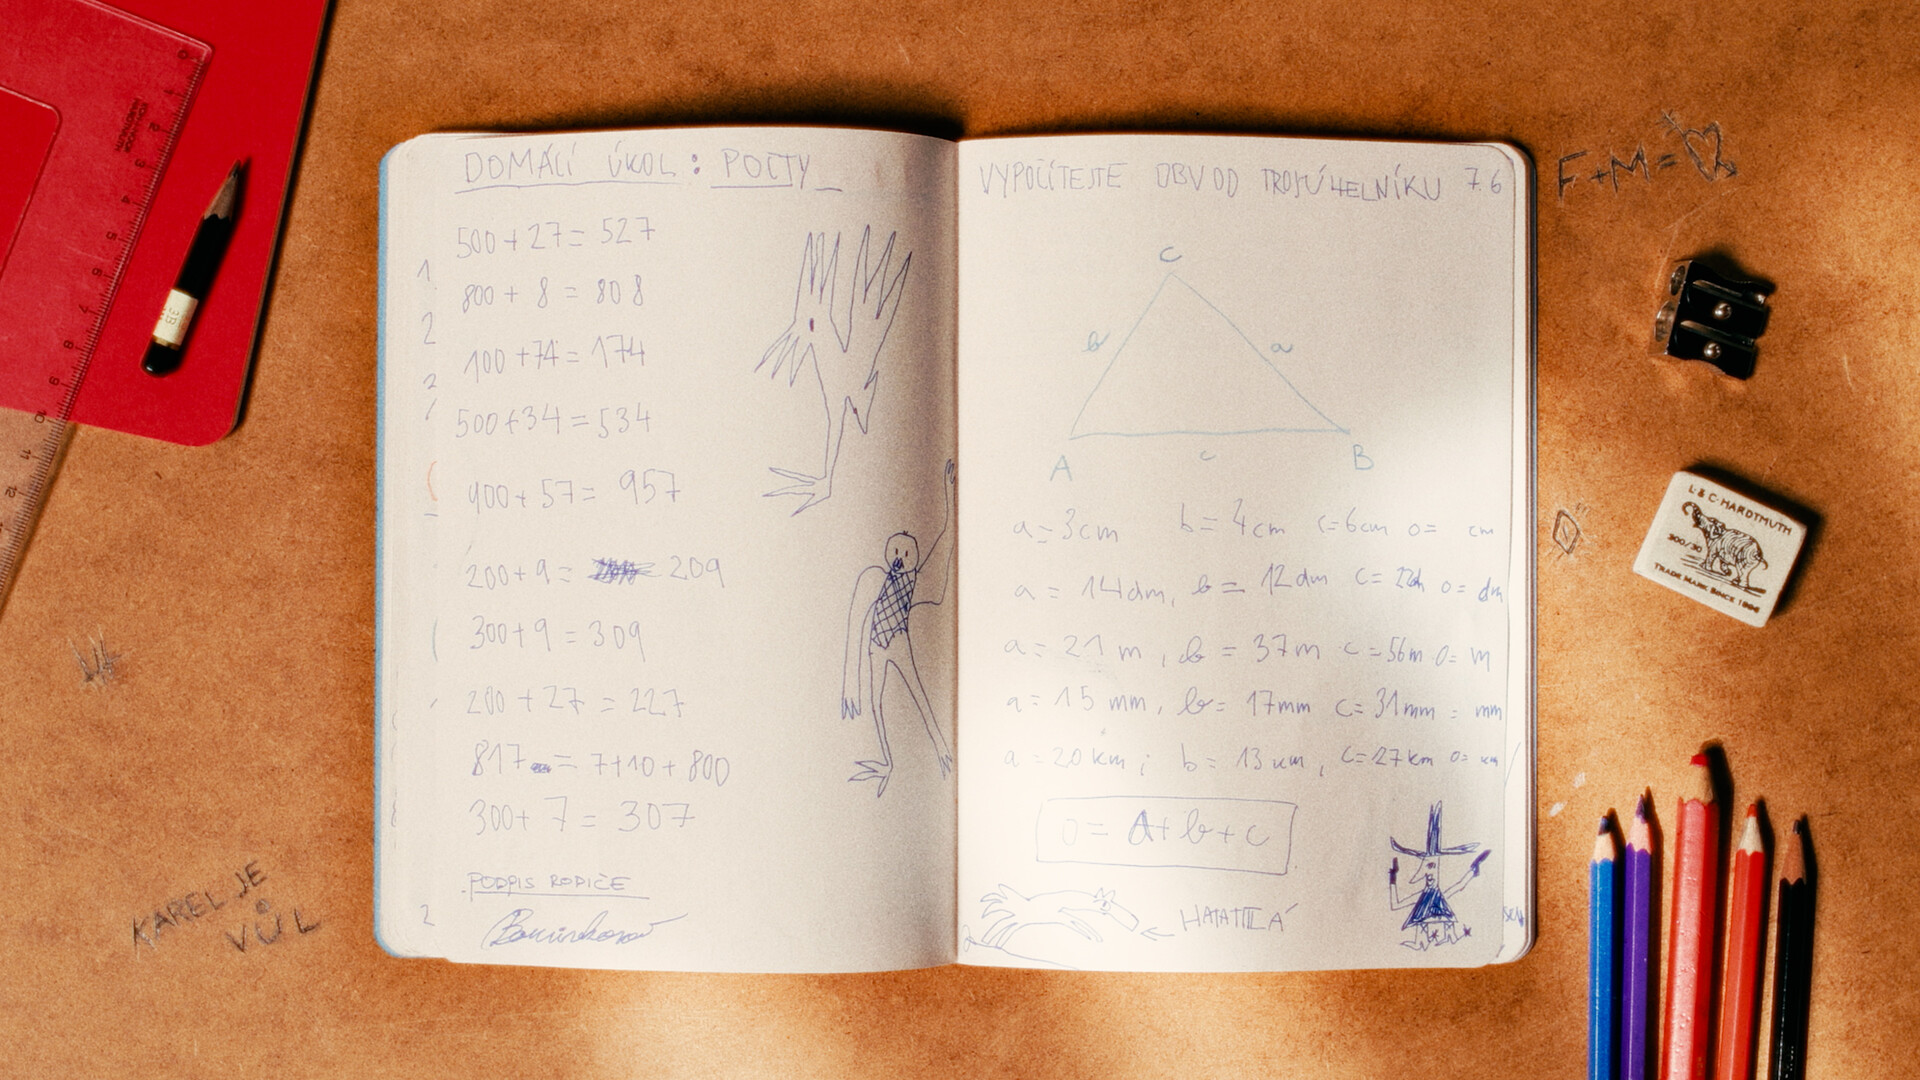 DOMÁCÍ ÚKOL: POČTY
500 + 27 = 527
800 + 8 = 808
100 + 74 = 174
500 + 34 = 534
900 + 57 = 957
200 + 9 = 209
300 + 9 = 309
200 + 27 = 227
817 = 7 + 10 + 800
300 + 7 = 307
PODPIS RODIČE
VYPOČÍTEJTE OBVOD TROJÚHELNÍKU 7.6
C
b a
A c B
a = 3 cm b = 4 cm c = 6 cm o = cm
a = 14 dm, b = 12 dm c = 22 o = dm
a = 21 m, b = 37 m c = 56 m o = m
a = 15 mm, b = 17 mm c = 31 mm = mm
a = 20 km; b = 13 km, c = 27 km o = km
o = A + b + c
F + M =
L. & C. HARDTMUTH
300/30
TRADE MARK SINCE
KAREL JE
VŮL
3B
0
1
2
3
4
5
6
7
8
9
10
11
12